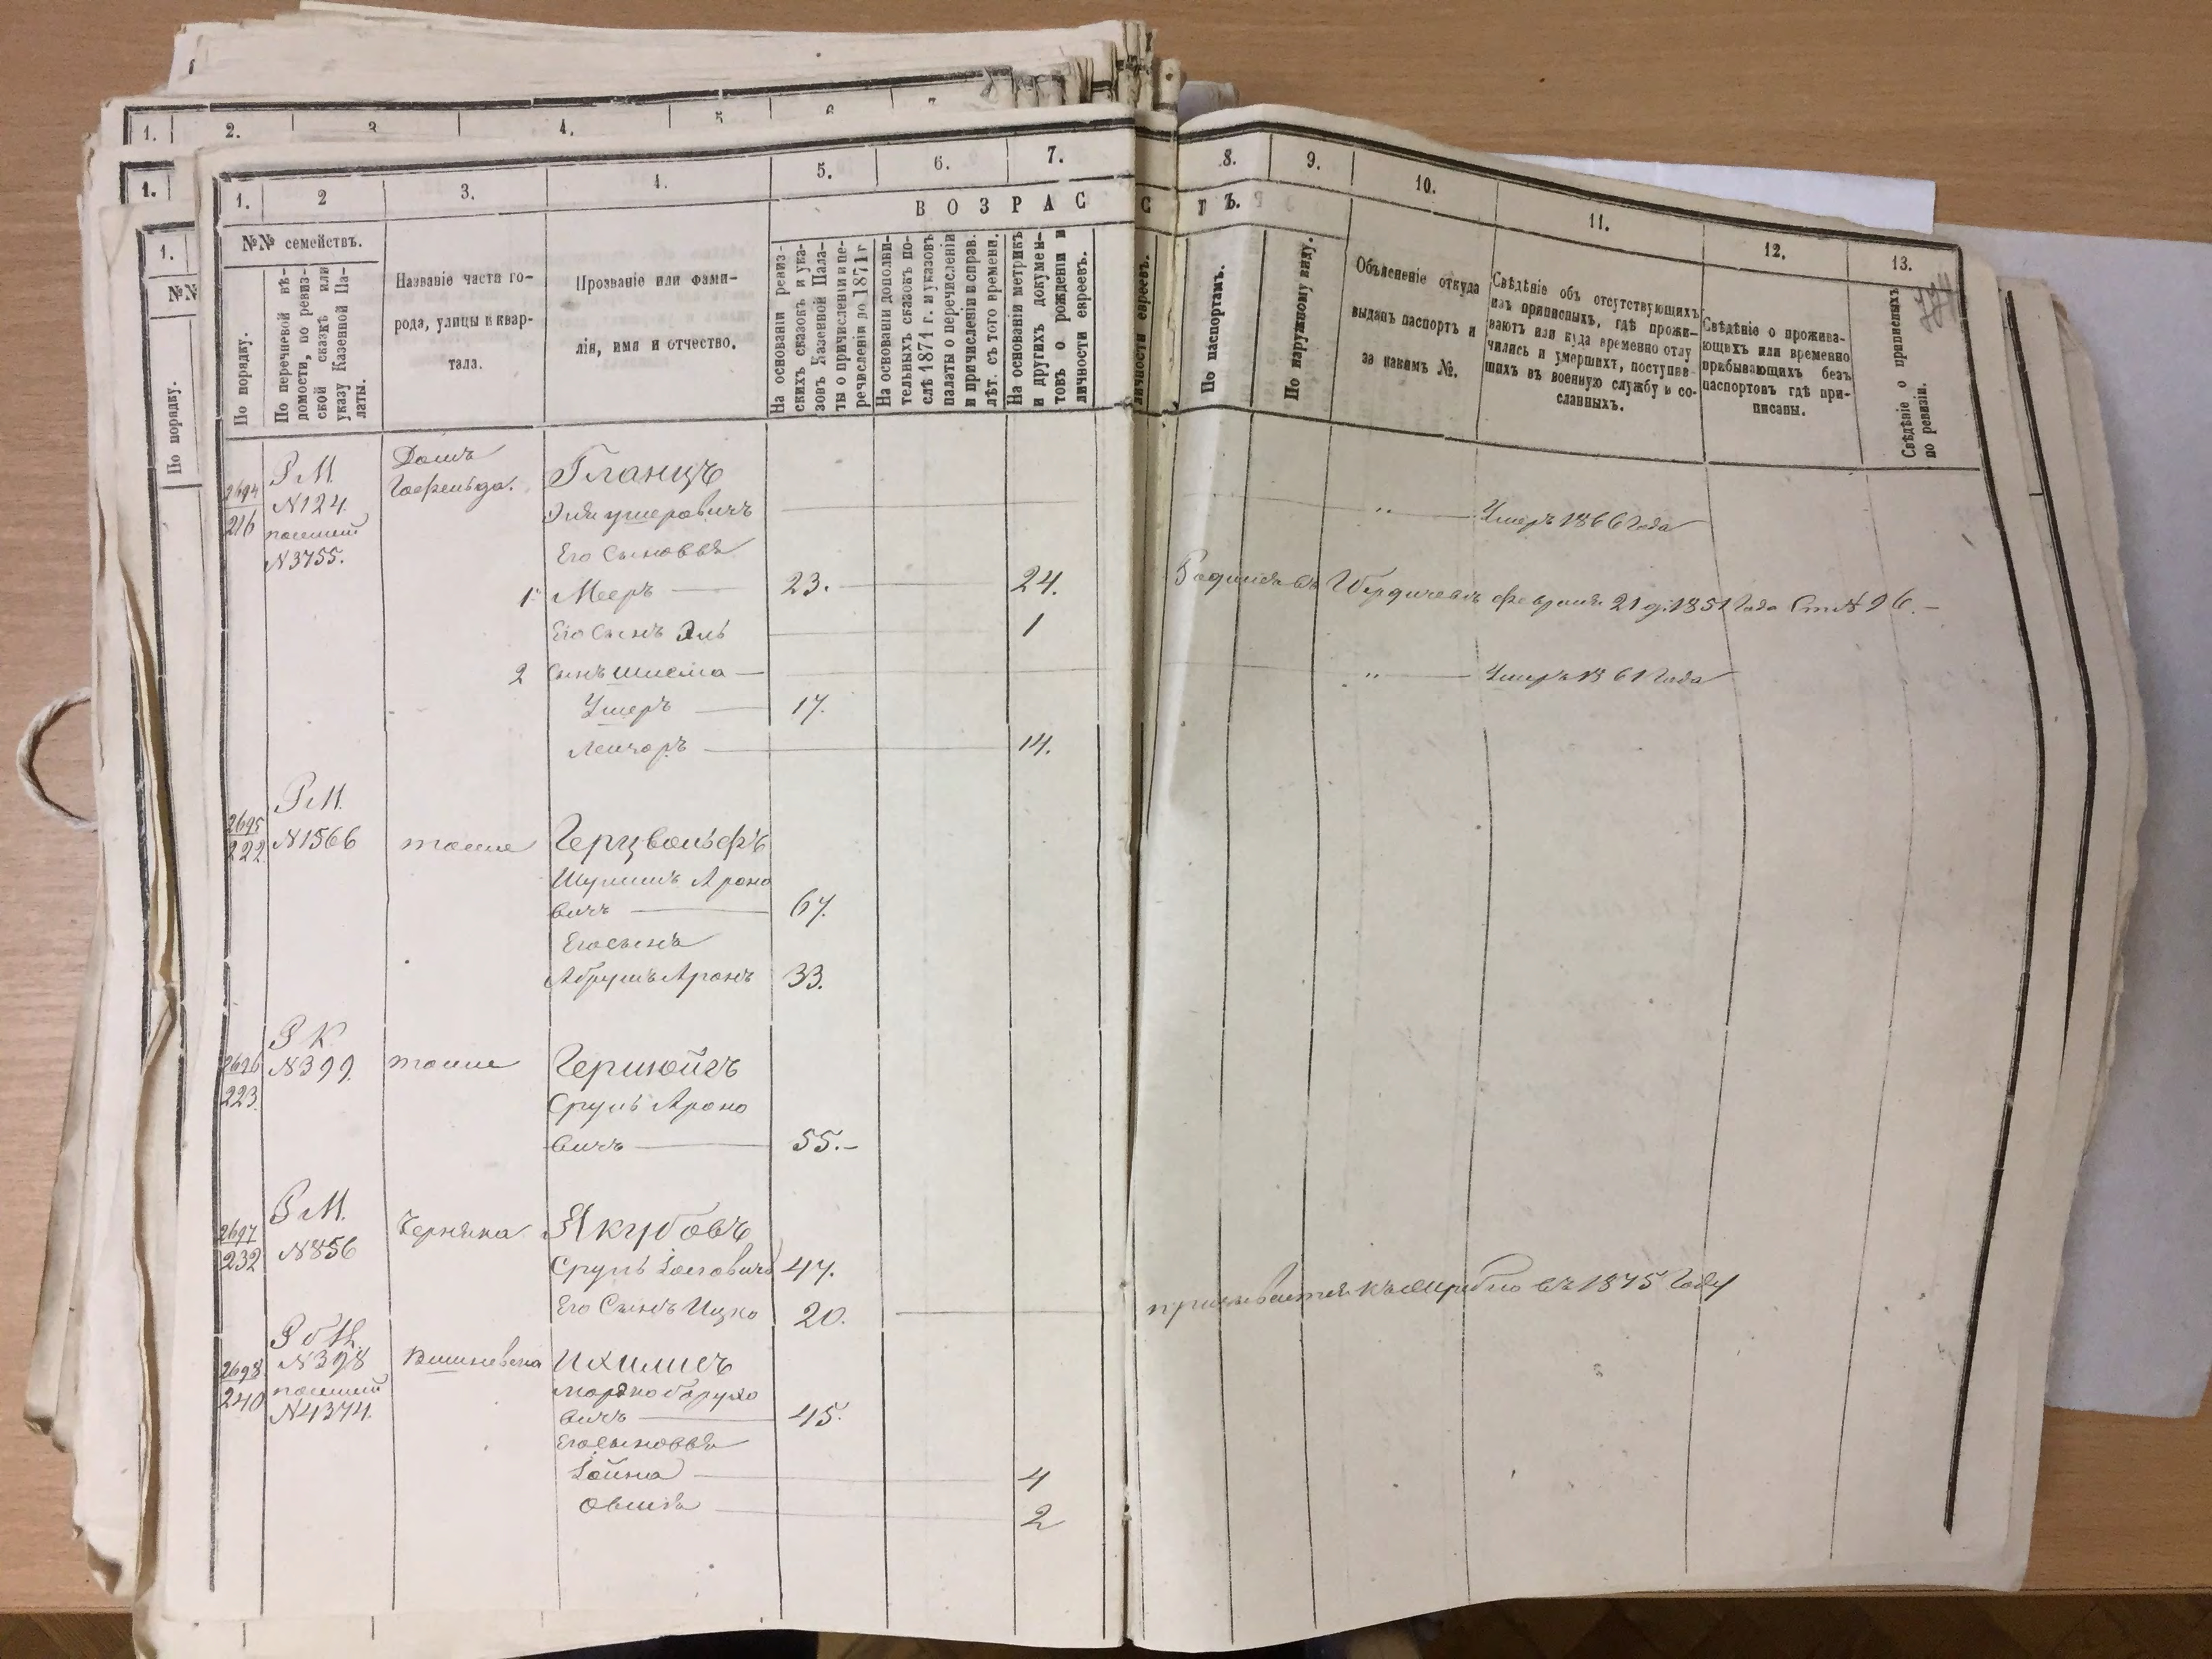 1. 2. 3. 4. 5. 6. 7.
1.
1.
№№
По порядку.
1. 2 3. 4. 5. 6. 7. 8. 9. 10. 11. 12. 13.
№№ семействъ.
ВОЗРАС
С
ТЪ.
По порядку.
По перечневой вѣ-
домости, по ревиз-
ской сказкѣ или
указу Казенной Па-
латы.
Названіе части го-
рода, улицы и квар-
тала.
Прозваніе или фами-
лія, имя и отчество.
На основаніи ревиз-
скихъ сказокъ и ука-
зовъ Казенной Пала-
ты о причисленіи и пе-
речисленіи до 1871 г
На основаніи дополни-
тельныхъ сказокъ по-
слѣ 1871 г. и указовъ
палаты о перечисленіи
и причисленіи и справ.
лѣт. съ того времени.
На основаніи метрикъ
и другихъ докумен-
товъ о рожденіи и
личности евреевъ.
личности евреевъ.
По паспортамъ.
По наружному виду.
Объясненіе откуда
выданъ паспортъ и
за какимъ №.
Свѣдѣніе объ отсутствующихъ
изъ приписныхъ, гдѣ прожи-
ваютъ или куда временно отлу
чились и умершихъ, поступив-
шихъ въ военную службу и со-
сланныхъ.
Свѣдѣніе о прожива-
ющихъ или временно
прибывающихъ безъ
паспортовъ гдѣ при-
писаны.
Свѣдѣніе о приписныхъ
по ревизіи.
2694
216
Р М.
N 124.
посемей
N 3755.
Домъ
Гофельда.
Гланцъ
Эли Ушеровичъ " Умеръ 1866 Года
Его Сыновья
1 Мееръ 23. 24. Родился въ Бердичевѣ февраля 21 д. 1851 Года Ст N 96.
Его Сынъ Эль 1
2 Сынъ Шлема " Умеръ 1861 Года
Ушеръ 17.
Лейзоръ 14.
2695
222.
Р М.
N 1566
тоже
Герцвольфъ
Шулимъ Ароно
вичъ 67.
Его сынъ
Абрумъ Аронъ 33.
2696
223.
Р К
N 399.
тоже
Срулъ Ароно
вичъ 55.
2697
232
Р М.
N 856
Черняка
Якубовъ
Сруль Іосіовичъ 47.
Его Сынъ Ицко 20. призывается къ жребію въ 1875 Году
2698
240
N 398
посемей
N 4374.
Вишневска
Ихилисъ
Мордко Борухо
вичъ 45.
Его сыновья
Іойна 4
Овшія 2